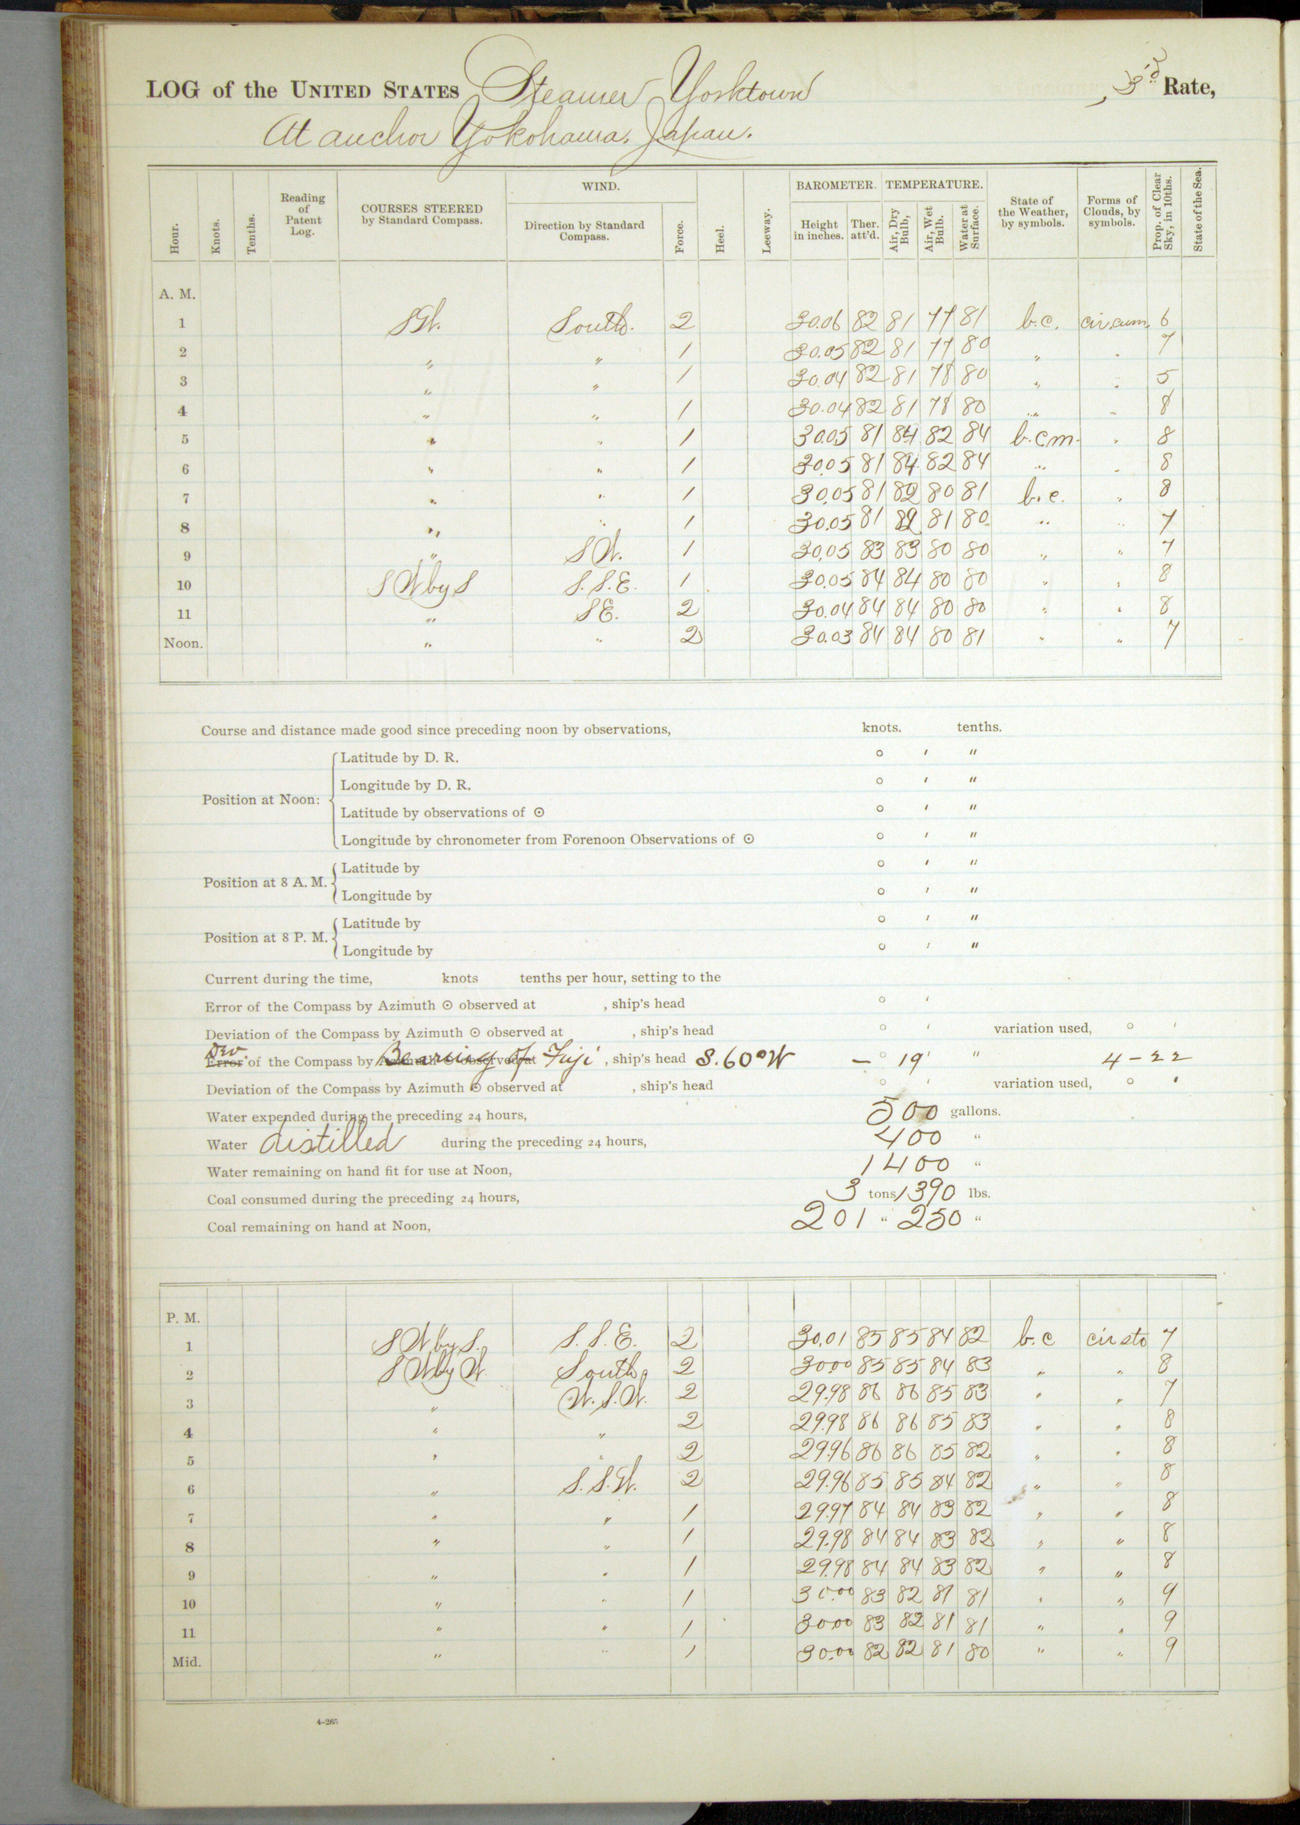 LOG of the UNITED STATES Steamer Yorktown, 3'd Rate,
At anchor Yokohama, Japan.
Hour. Knots. Tenths. Reading of Patent Log. COURSES STEERED by Standard Compass. WIND. Direction by Standard Compass. Force. Heel. Leeway. BAROMETER. Height in inches. Ther. att'd. TEMPERATURE. Air, Dry Bulb, Air, Wet Bulb. Water at Surface. State of the Weather, by symbols. Forms of Clouds, by symbols. Prop. of Clear Sky, in 10ths. State of the Sea.
A. M.
1 SW. South. 2 30.06 82 81 77 81 b.c. cir.cum. 6
2 " " 1 30.05 82 81 77 80 " " 7
3 " " 1 30.04 82 81 78 80 " " 5
4 " " 1 30.04 82 81 78 80 " " 8
5 " " 1 30.05 81 84 82 84 b.c.m. " 8
6 " " 1 30.05 81 84 82 84 " " 8
7 " " 1 30.05 81 82 80 81 b.c. " 8
8 " " 1 30.05 81 82 81 80 " " 7
9 " SW. 1 30.05 83 83 80 80 " " 7
10 SW by S S.S.E. 1 30.05 84 84 80 80 " " 8
11 " SE. 2 30.04 84 84 80 80 " " 8
Noon. " " 2 30.03 84 84 80 81 " " 7
Course and distance made good since preceding noon by observations, knots. tenths.
Position at Noon:
Latitude by D. R. ° ′ ″
Longitude by D. R. ° ′ ″
Latitude by observations of ⊙ ° ′ ″
Longitude by chronometer from Forenoon Observations of ⊙ ° ′ ″
Position at 8 A. M.
Latitude by ° ′ ″
Longitude by ° ′ ″
Position at 8 P. M.
Latitude by ° ′ ″
Longitude by ° ′ ″
Current during the time, knots tenths per hour, setting to the
Error of the Compass by Azimuth ⊙ observed at , ship's head ° ′
Deviation of the Compass by Azimuth ⊙ observed at , ship's head ° ′ variation used, ° ′
Dev. Error of the Compass by Azimuth ⊙ observed at Bearing of Fuji , ship's head S.60°W — ° 19′ ″ 4-22
Deviation of the Compass by Azimuth ⊙ observed at , ship's head ° ′ variation used, ° ′
Water expended during the preceding 24 hours, 500 gallons.
Water distilled during the preceding 24 hours, 400 "
Water remaining on hand fit for use at Noon, 1400 "
Coal consumed during the preceding 24 hours, 3 tons 1390 lbs.
Coal remaining on hand at Noon, 201 " 250 "
P. M.
1 SW by S. S.S.E. 2 30.01 85 85 84 82 b.c cir sto 7
2 SW by W South, 2 30.00 85 85 84 83 " " 8
3 " W.S.W. 2 29.98 86 86 85 83 " " 7
4 " " 2 29.98 86 86 85 83 " " 8
5 " " 2 29.96 86 86 85 82 " " 8
6 " S.S.W. 2 29.96 85 85 84 82 " " 8
7 " " 1 29.97 84 84 83 82 " " 8
8 " " 1 29.98 84 84 83 82 " " 8
9 " " 1 29.98 84 84 83 82 " " 8
10 " " 1 30.00 83 82 81 81 " " 9
11 " " 1 30.00 83 82 81 81 " " 9
Mid. " " 1 30.00 82 82 81 80 " " 9
4-265